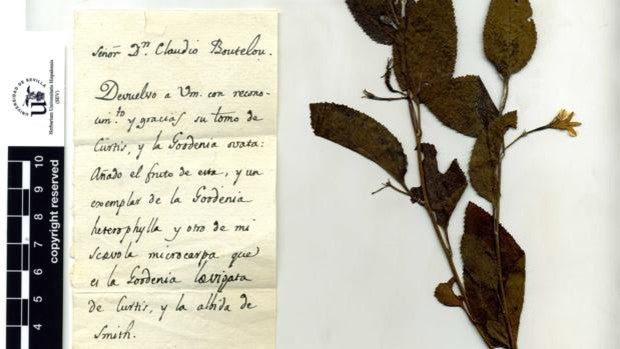 Señor Dn. Claudio Boutelou.
Devuelvo a Vm. con recono-
cim.to y gracias su tomo de
Curtis, y la Gordenia ovata:
Añado el fruto de esta, y un
exemplar de la Gordenia
heterophylla y otro de mi
scævola microcarpa que
es la Gordenia lævigata
de Curtis, y la albida de
Smith.
UNIVERSIDAD DE SEVILLA
Herbarium Universitatis Hispalensis
(SEV)
copyright reserved
10
9
8
7
6
5
4